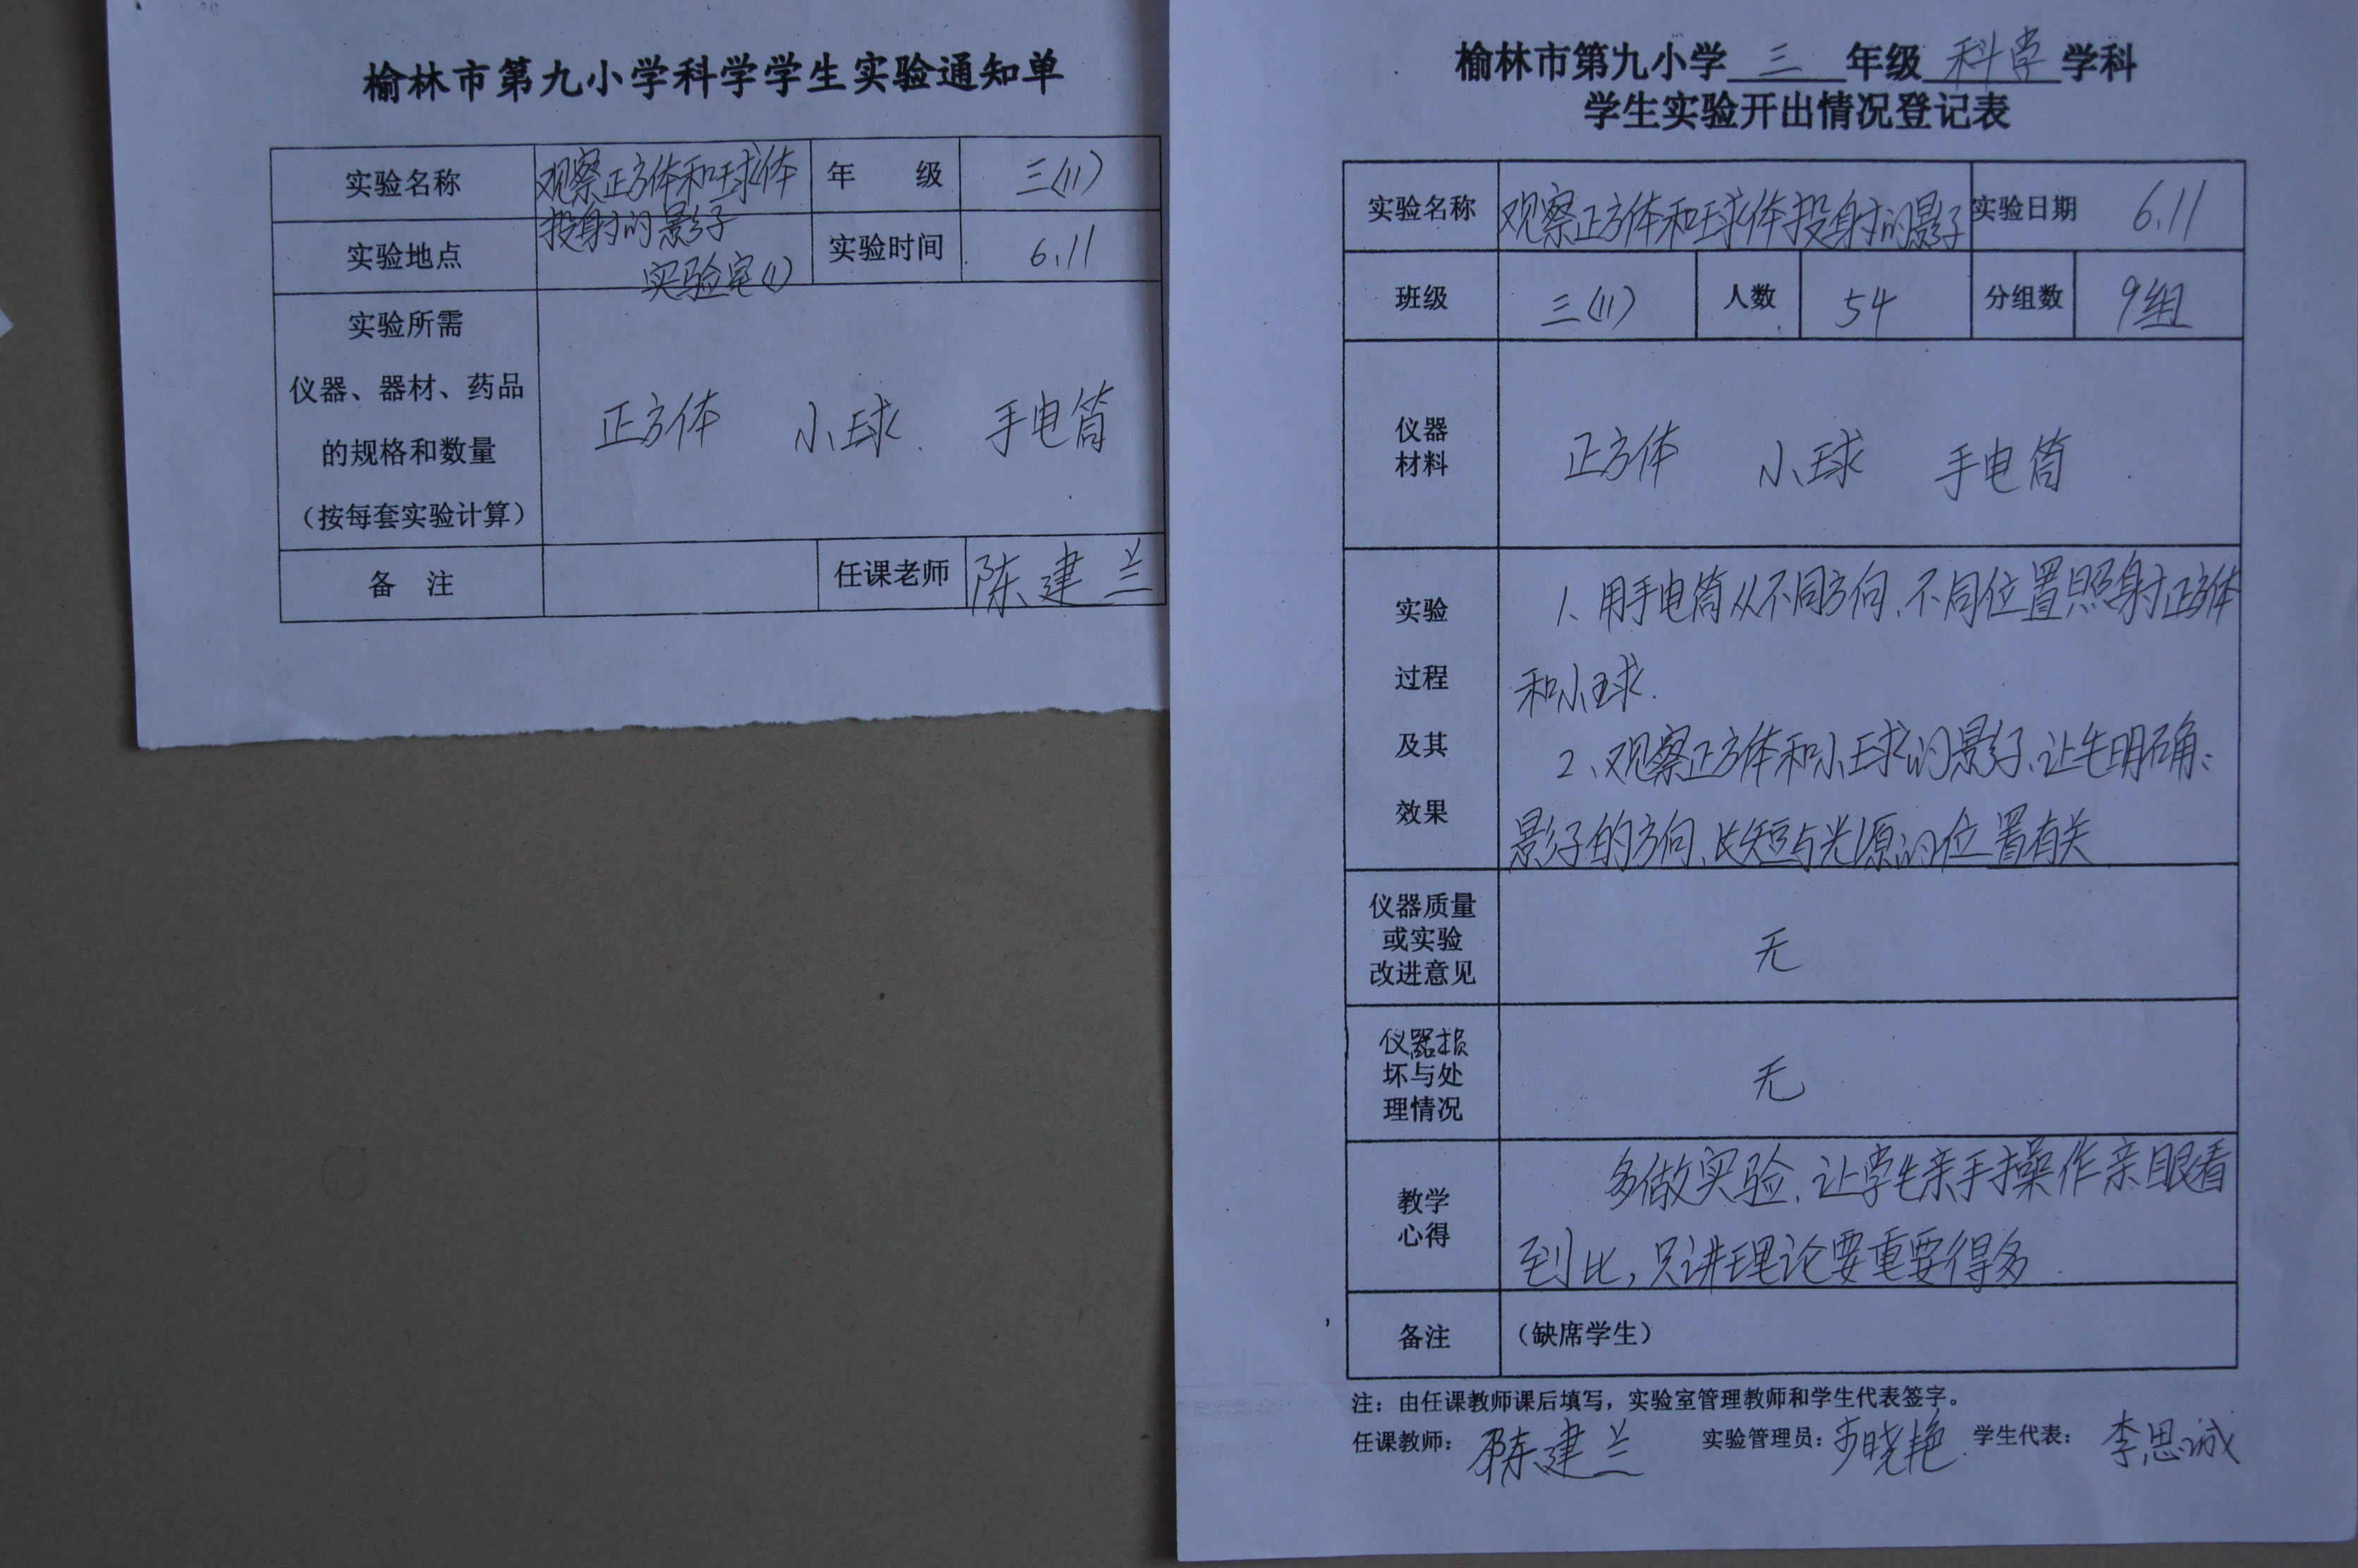 榆林市第九小学科学学生实验通知单
实验名称 观察正方体和球体 年 级 三(11)
投射的影子
实验地点 实验室(1) 实验时间 6.11
实验所需
仪器、器材、药品
的规格和数量
(按每套实验计算)
正方体 小球. 手电筒
备 注 任课老师 陈建兰
榆林市第九小学 三 年级 科学 学科
学生实验开出情况登记表
实验名称 观察正方体和球体投射的影子 实验日期 6.11
班级 三(11) 人数 54 分组数 9组
仪器
材料
正方体 小球 手电筒
实验
过程
及其
效果
1、用手电筒从不同方向、不同位置照射正方体
和小球.
2、观察正方体和小球的影子、让生明确:
影子的方向、长短与光源的位置有关
仪器质量
或实验
改进意见
无
仪器损
坏与处
理情况
无
教学
心得
多做实验、让学生亲手操作亲眼看
到比,只讲理论要重要得多
备注 (缺席学生)
注:由任课教师课后填写,实验室管理教师和学生代表签字。
任课教师: 陈建兰 实验管理员: 晓艳 学生代表: 李思诚